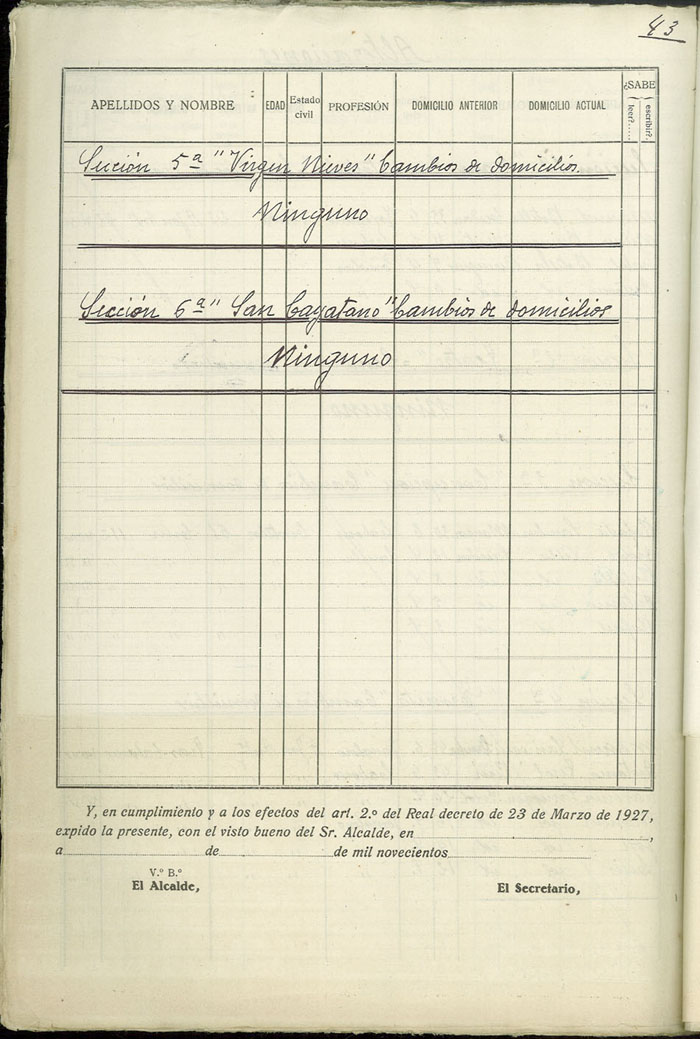 43
APELLIDOS Y NOMBRE EDAD Estado civil PROFESIÓN DOMICILIO ANTERIOR DOMICILIO ACTUAL ¿SABE leer?..... escribir?.
Sección 5ª "Virgen Nieves" Cambios de domicilios.
Ninguno
Sección 6ª "San Cayatano" Cambios de domicilios
Ninguno
Y, en cumplimiento y a los efectos del art. 2.º del Real decreto de 23 de Marzo de 1927,
expido la presente, con el visto bueno del Sr. Alcalde, en ,
a de de mil novecientos
V.º B.º
El Alcalde, El Secretario,